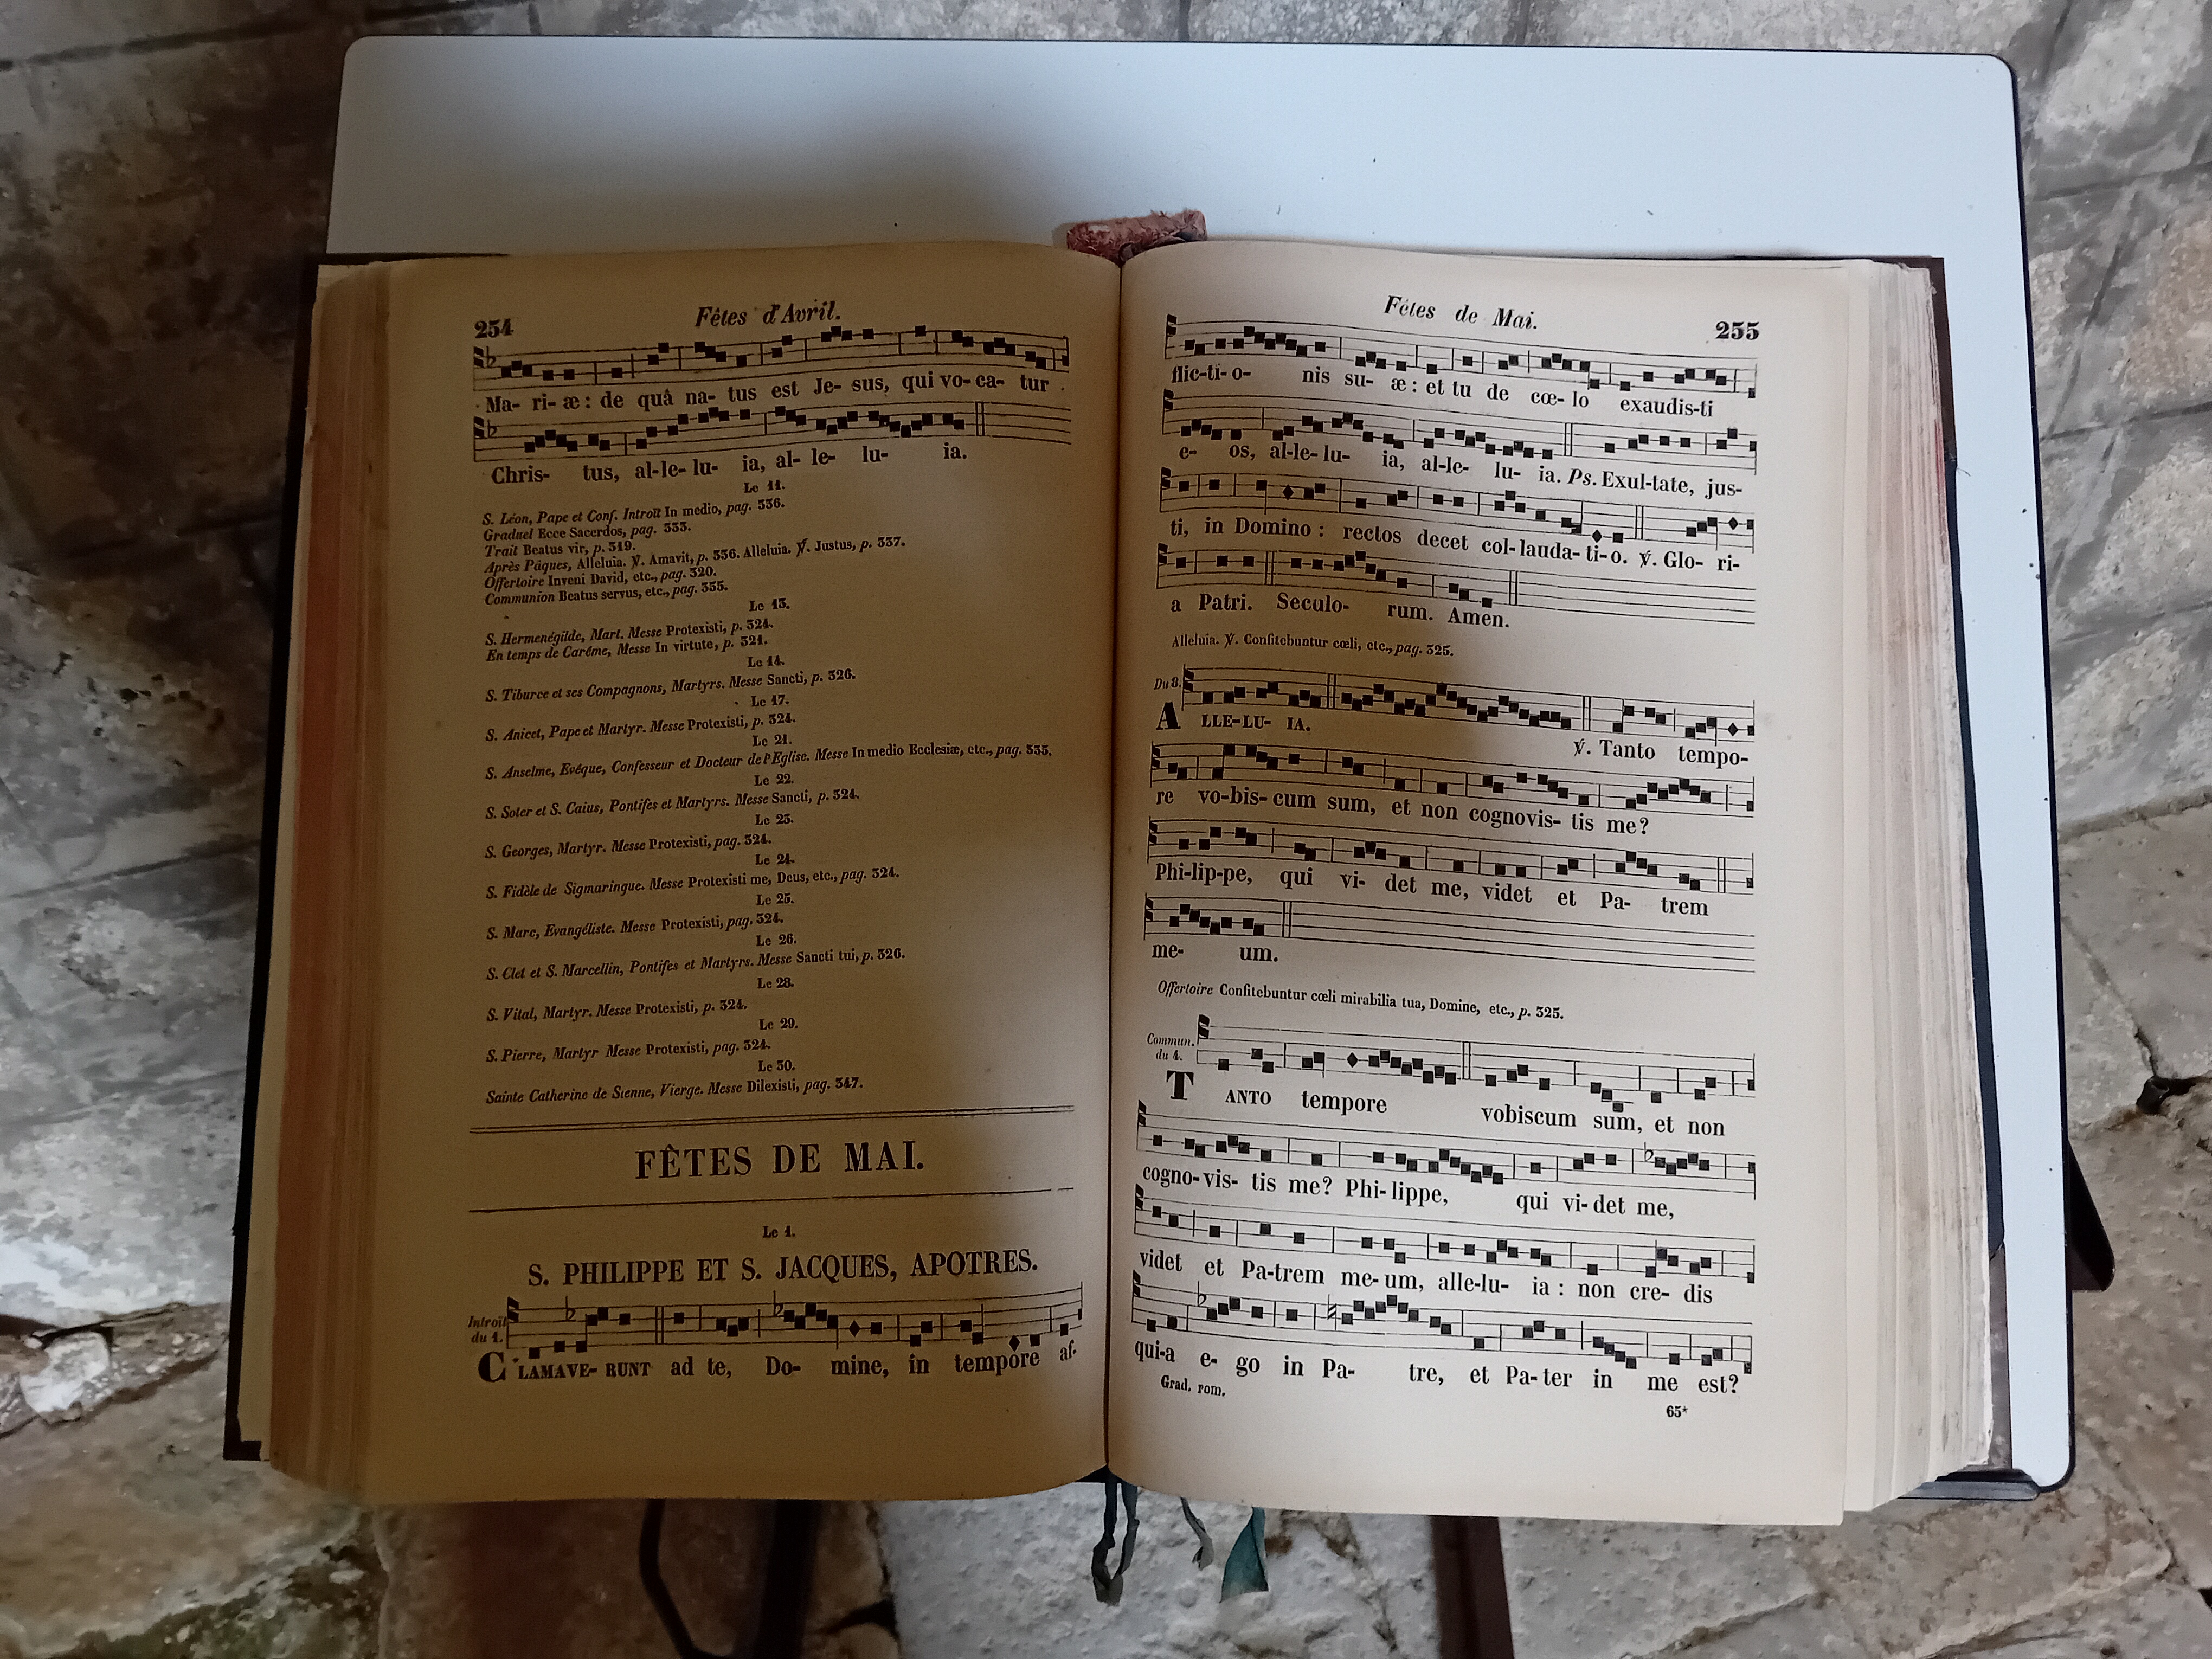 254 Fêtes d'Avril.
Ma- ri- æ : de quâ na- tus est Je- sus, qui vo- ca- tur
Chris- tus, al-le- lu- ia, al- le- lu- ia.
Le 11.
S. Léon, Pape et Conf. Introït In medio, pag. 336.
Graduel Ecce Sacerdos, pag. 333.
Trait Beatus vir, p. 319.
Après Pâques, Alleluia. ℣. Amavit, p. 336. Alleluia. ℣. Justus, p. 337.
Offertoire Inveni David, etc., pag. 320.
Communion Beatus servus, etc., pag. 335.
Le 13.
S. Hermenégilde, Mart. Messe Protexisti, p. 324.
En temps de Carême, Messe In virtute, p. 321.
Le 14.
S. Tiburce et ses Compagnons, Martyrs. Messe Sancti, p. 326.
Le 17.
S. Anicet, Pape et Martyr. Messe Protexisti, p. 324.
Le 21.
S. Anselme, Evéque, Confesseur et Docteur de l'Eglise. Messe In medio Ecclesiæ, etc., pag. 335.
Le 22.
S. Soter et S. Caius, Pontifes et Martyrs. Messe Sancti, p. 324.
Le 23.
S. Georges, Martyr. Messe Protexisti, pag. 324.
Le 24.
S. Fidèle de Sigmaringue. Messe Protexisti me, Deus, etc., pag. 324.
Le 25.
S. Marc, Evangéliste. Messe Protexisti, pag. 324.
Le 26.
S. Clet et S. Marcellin, Pontifes et Martyrs. Messe Sancti tui, p. 326.
Le 28.
S. Vital, Martyr. Messe Protexisti, p. 324.
Le 29.
S. Pierre, Martyr Messe Protexisti, pag. 324.
Le 30.
Sainte Catherine de Sienne, Vierge. Messe Dilexisti, pag. 347.
FÊTES DE MAI.
Le 1.
S. PHILIPPE ET S. JACQUES, APOTRES.
Introït
du 1.
CLAMAVE- RUNT ad te, Do- mine, in tempore af-
Fêtes de Mai. 255
flic-ti- o- nis su- æ : et tu de cœ- lo exaudis-ti
e- os, al-le- lu- ia, al-le- lu- ia. Ps. Exul-tate, jus-
ti, in Domino : rectos decet col- lauda- ti- o. ℣. Glo- ri-
a Patri. Seculo- rum. Amen.
Alleluia. ℣. Confitebuntur cœli, etc., pag. 325.
Du 8.
ALLE-LU- IA. ℣. Tanto tempo-
re vo-bis- cum sum, et non cognovis- tis me?
Phi-lip-pe, qui vi- det me, videt et Pa- trem
me- um.
Offertoire Confitebuntur cœli mirabilia tua, Domine, etc., p. 325.
Commun.
du 4.
TANTO tempore vobiscum sum, et non
cogno- vis- tis me? Phi- lippe, qui vi- det me,
videt et Pa-trem me- um, alle-lu- ia : non cre- dis
qui-a e- go in Pa- tre, et Pa- ter in me est?
Grad. rom.
65*